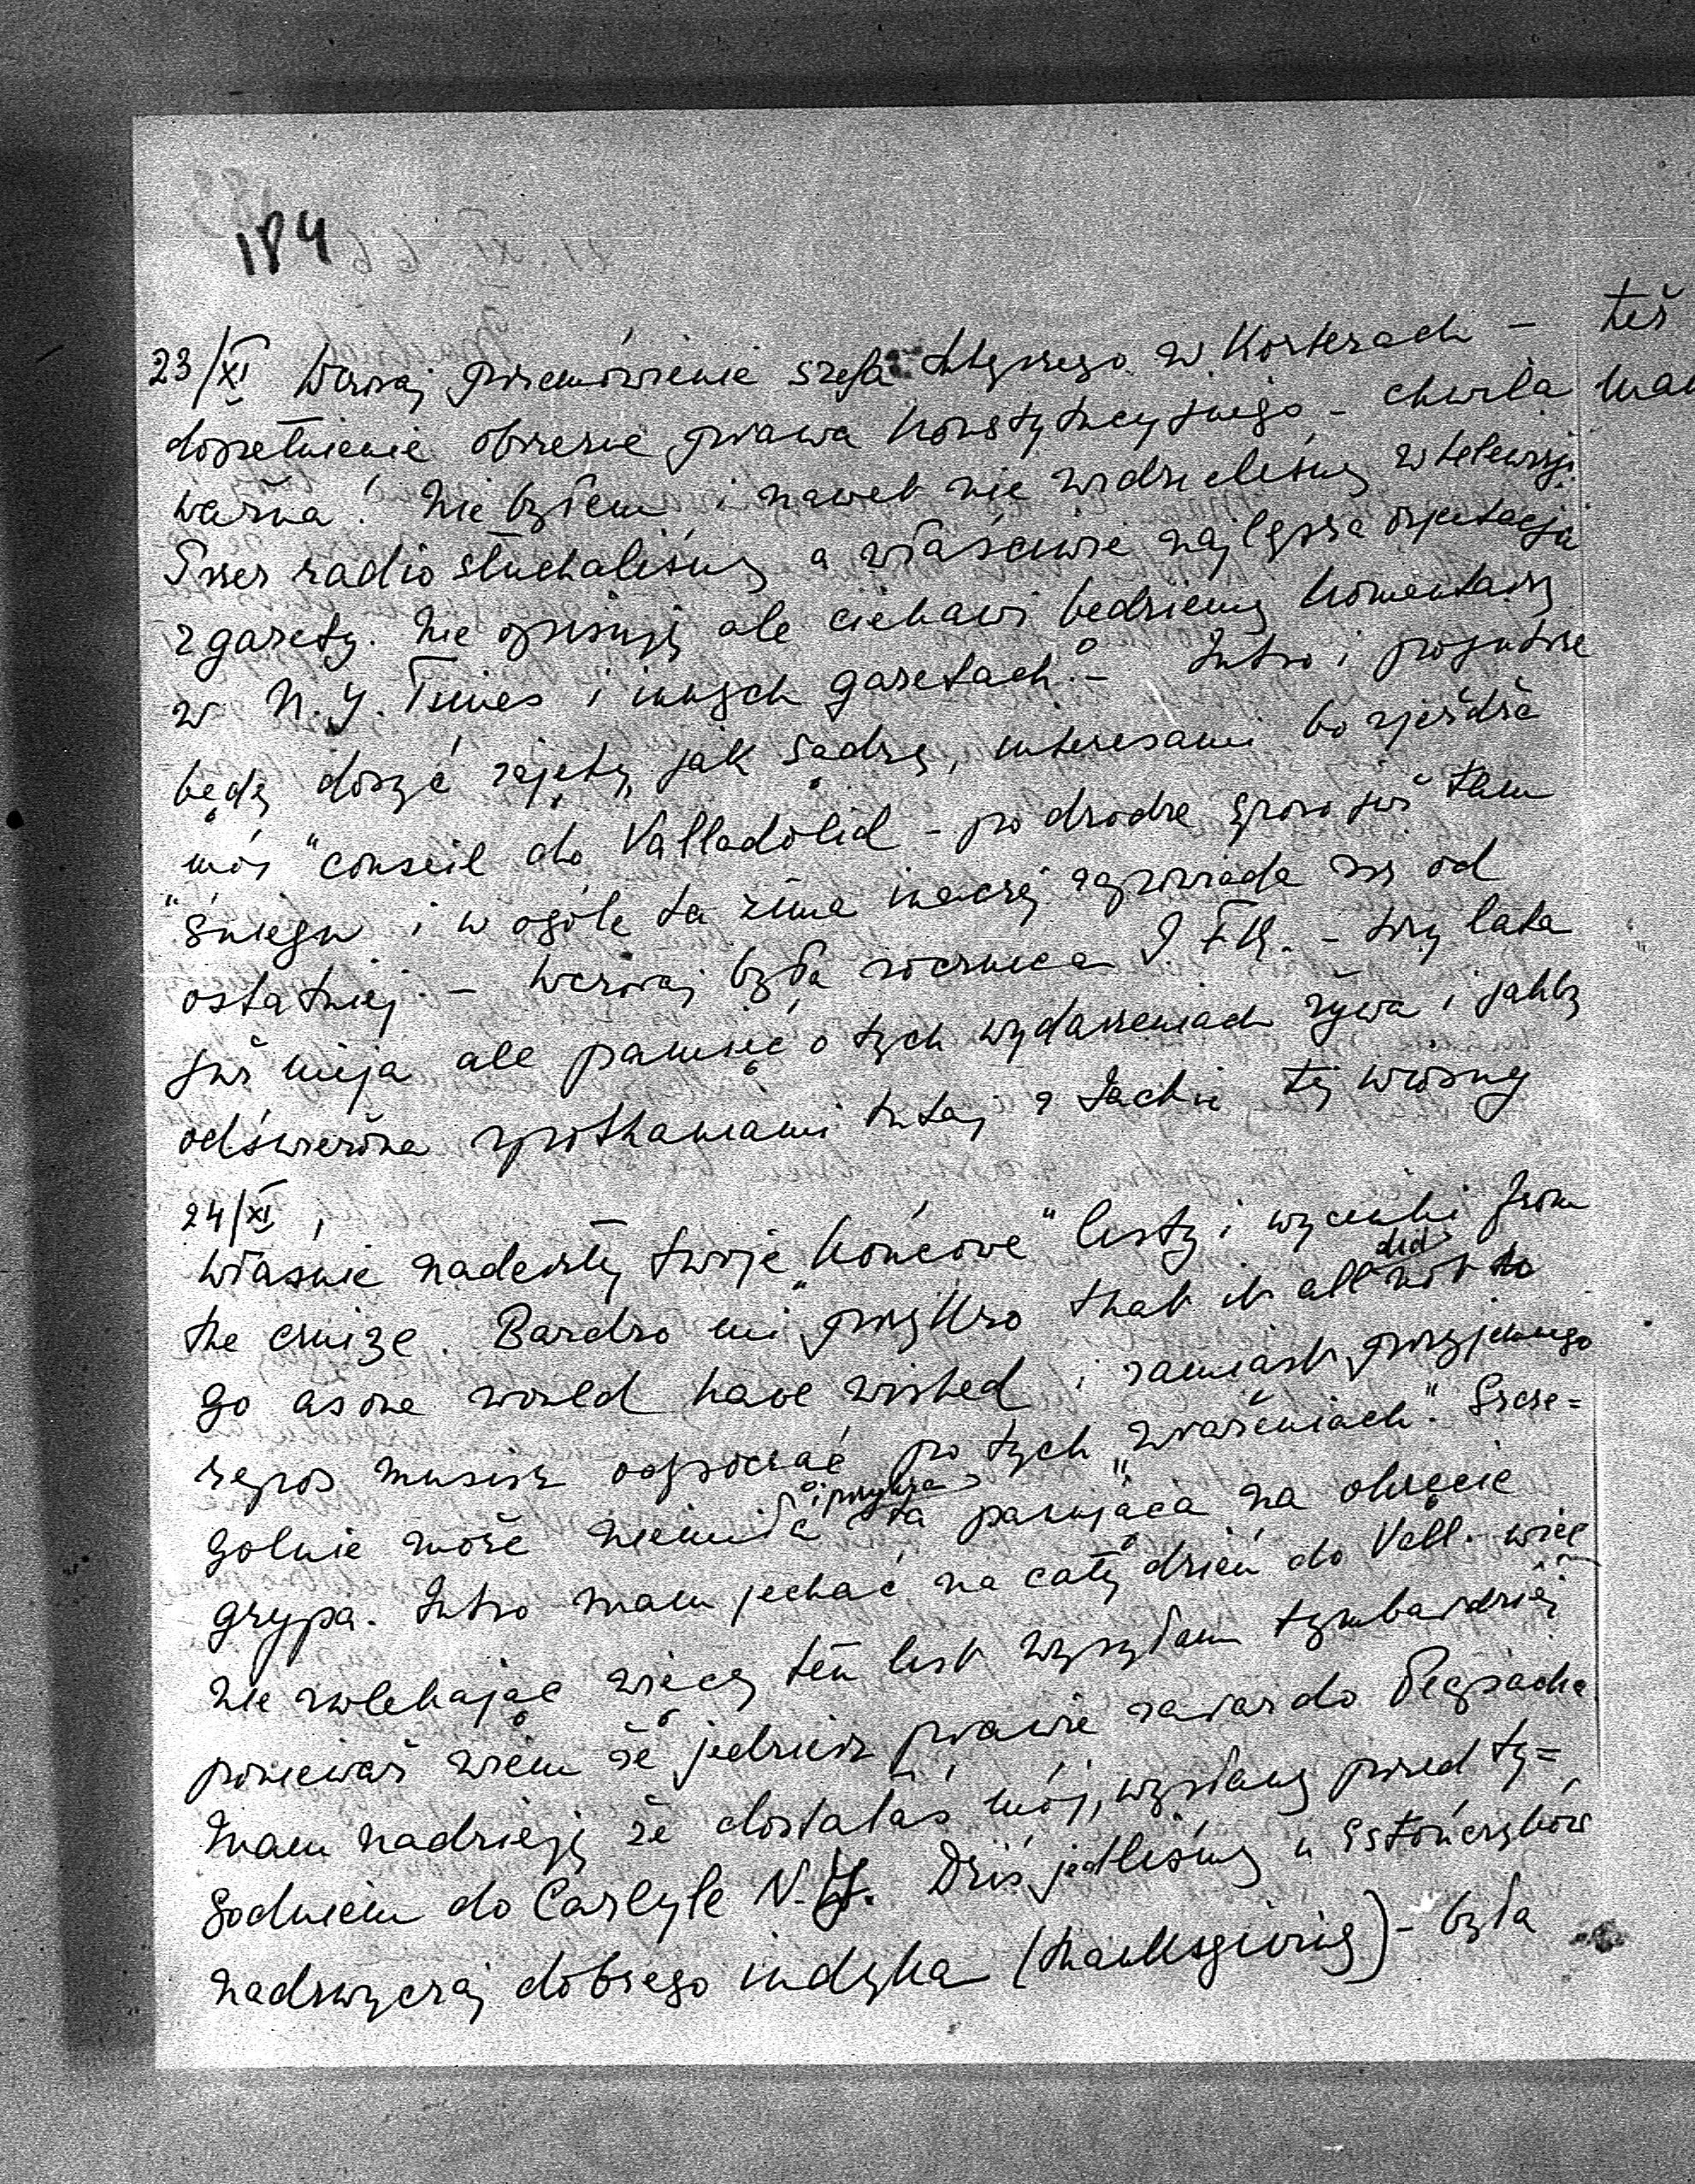 184
23/XI Wczoraj przemówienie szefa tutejszego w Kortezach -
dopełnienie obszerne prawa konstytucyjnego - chwila
ważna! Nie byłem i nawet nie widzieliśmy w telewizji.
Przez radio słuchaliśmy a właściwie najlepsza
z gazety. Nie opisuję ale ciekawi będziemy komentarzy
w N.Y. Times i innych gazetach. - Jutro i pojutrze
będę dosyć zajęty, jak sądzę, interesami bo zjeżdża
mój "conseil do Valladolid - po drodze sporo już tam
"śniegu i w ogóle ta zima inaczej zapowiada się od
ostatniej. - Wczoraj była rocznica J.F.K. - trzy lata
już mija ale pamięć o tych wydarzeniach żywa i jakby
odświeżona spotkaniami tutaj z Jackie tej wiosny
24/XI
Właśnie nadeszły twoje "końcowe" listy i wycinki from
the cruize. Bardzo mi "przykro that it all did not
go as one would have wished i zamiast przyjemnego
repos musisz odpocząć po tych "wrażeniach". Szcze=
gólnie może niemiła i przykra ta panująca na okręcie
grypa. Jutro mam jechać na cały dzień do Vall. więc
nie zwlekając więcej ten list wysyłam tymbardziej
ponieważ wiem że jedziesz prawie zaraz do
Mam nadzieję że dostałaś mój, wysłany przed ty=
godniem do Carlyle N.Y. Dziś jedliśmy u
nadzwyczaj dobrego indyka (thanksgiving) - była
też